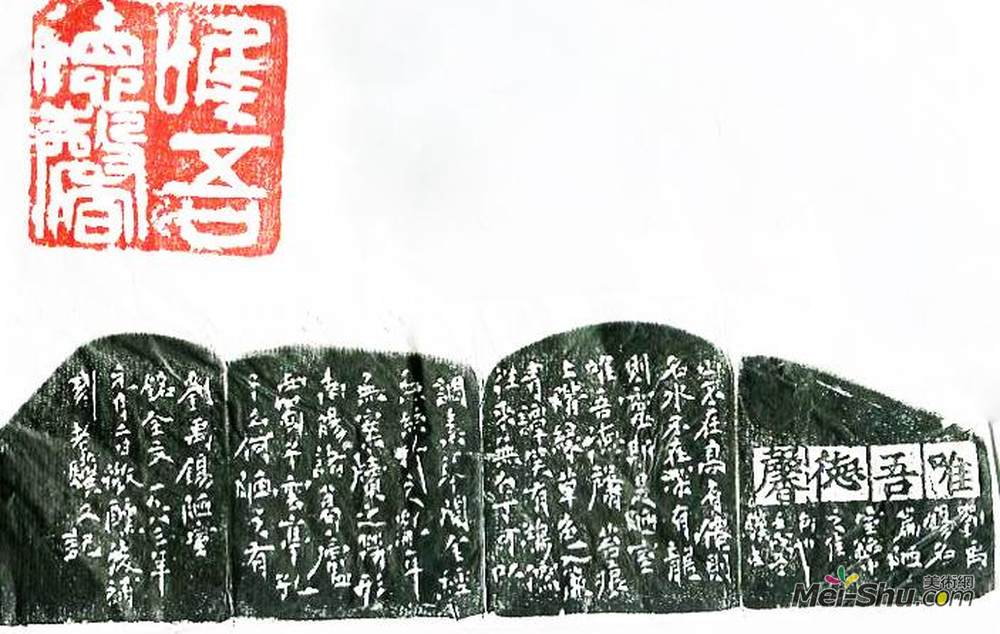 惟吾
德馨
唯吾德馨
劉禹
錫名
篇陋
室銘中
之佳
山不在高有僊則
名水不在深有龍
則靈斯是陋室
唯吾德馨苔痕
上階緑草色入簾
青談笑有鴻儒
往來無白丁可以
調素琴閱金經
無絲竹之亂耳
無案牘之勞形
南陽諸葛廬
西蜀子雲亭孔
子云何陋之有
劉禹錫陋室
銘全文一九八三年
元月二日微醺後補
刻 老驥又記
美術網
Mei-Shu.com